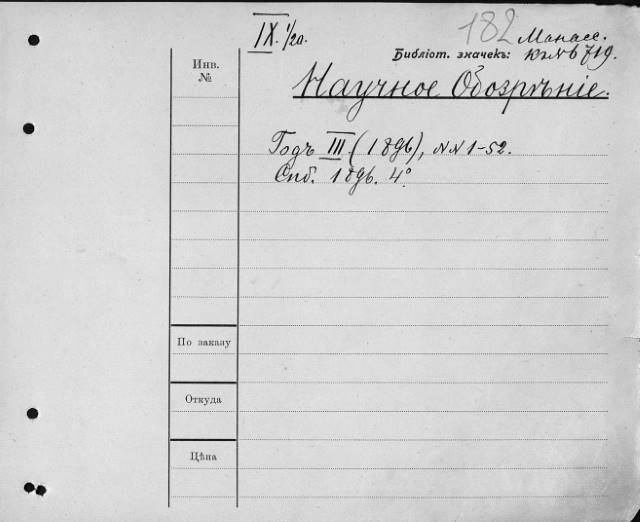 IX. 1/20.
182 Манасс.
Библіот. значекъ: Кг№6719.
Инв.
№
Научное Обозрѣніе.
Годъ III (1896), №№ 1-52.
Спб. 1896. 4°.
По заказу
Откуда
Цѣна